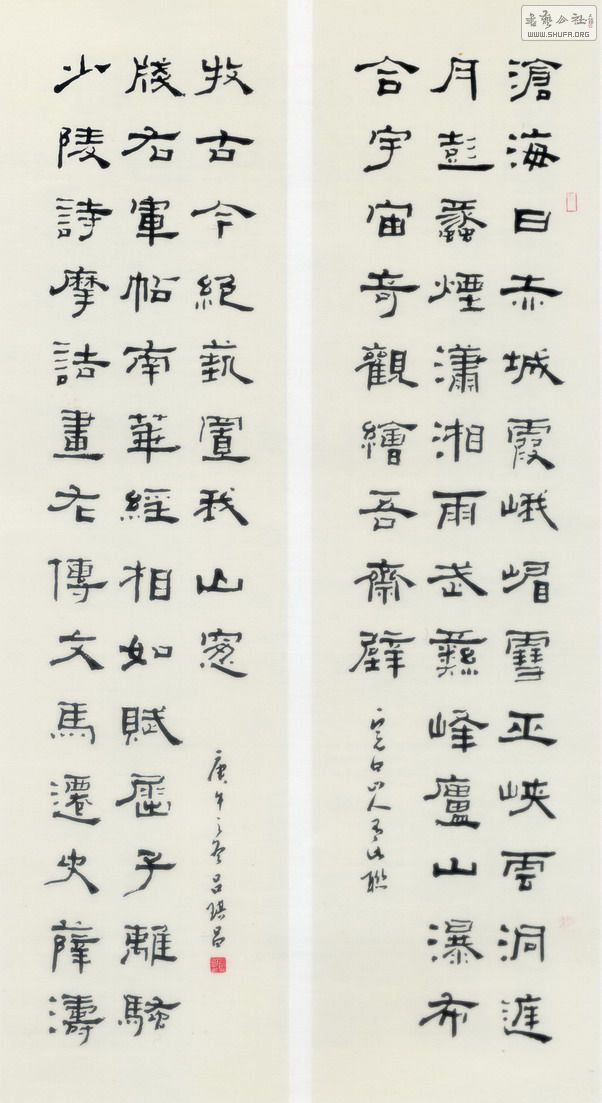 書藝公社
WWW.SHUFA.ORG
滄海日赤城霞峨嵋雪巫峽雲洞庭
月彭蠡煙瀟湘雨武彝峰廬山瀑布
合宇宙奇觀繪吾齋壁
完白山人有此聯
少陵詩摩詰畫左傳文馬遷史薛濤
牋右軍帖南華經相如賦屈子離騷
收古今絕藝置我山窻
庚午之冬呂琪昌